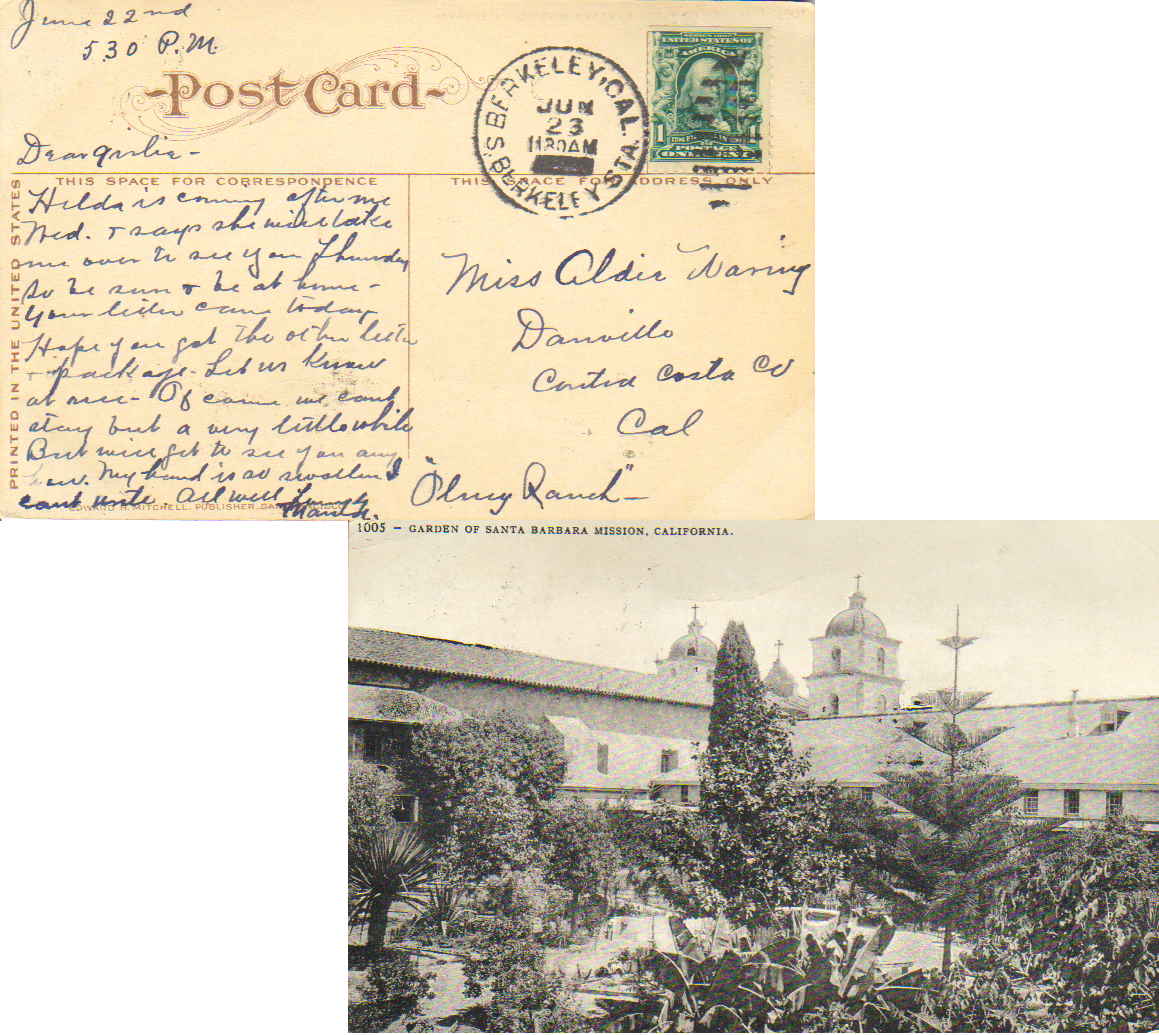 June 22nd
5.30 P.M.
Post Card
S. BERKELEY, CAL.
JUN
23
1130AM
BERKELEY STA.
UNITED STATES OF
AMERICA
1 1
POSTAGE
ONE CENT
Dear
THIS SPACE FOR CORRESPONDENCE
THIS SPACE FOR ADDRESS ONLY
PRINTED IN THE UNITED STATES
Hilda is coming after me
Wed. & says she will take
me over to see you Thursday
So be sure & be at home -
Your letter came today
Hope you got the other letter
& package. Let us know
at once - Of course we cant
stay but a very little while
But will get to see you any
how. My hand is so swollen I
cant write. All well
EDWARD H. MITCHELL, PUBLISHER, SAN
Miss Aldie Naring
Danville
Contra Costa Co
Cal
"Olney Ranch" -
1005 - GARDEN OF SANTA BARBARA MISSION, CALIFORNIA.